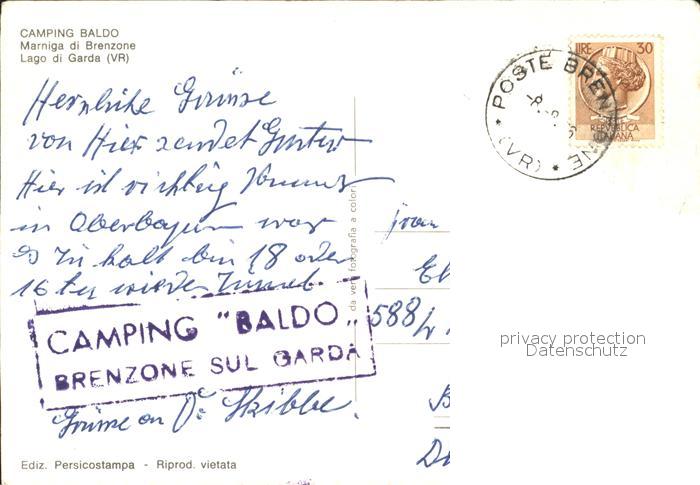 CAMPING BALDO
Marniga di Brenzone
Lago di Garda (VR)
LIRE 30
REPVBBLICA
ITALIANA
POSTE BRENZONE
(VR)
Herzliche Grüsse
von Hier sendet Gustav
Hier ist richtig Sommer
in Oberbayern war
es zu kalt bin 18 oder
16ten wieder zurück
da vera fotografia a colori
Frau
588/
CAMPING "BALDO"
BRENZONE SUL GARDA
Grüsse an Skibbe.
Ediz. Persicostampa - Riprod. vietata
privacy protection
Datenschutz